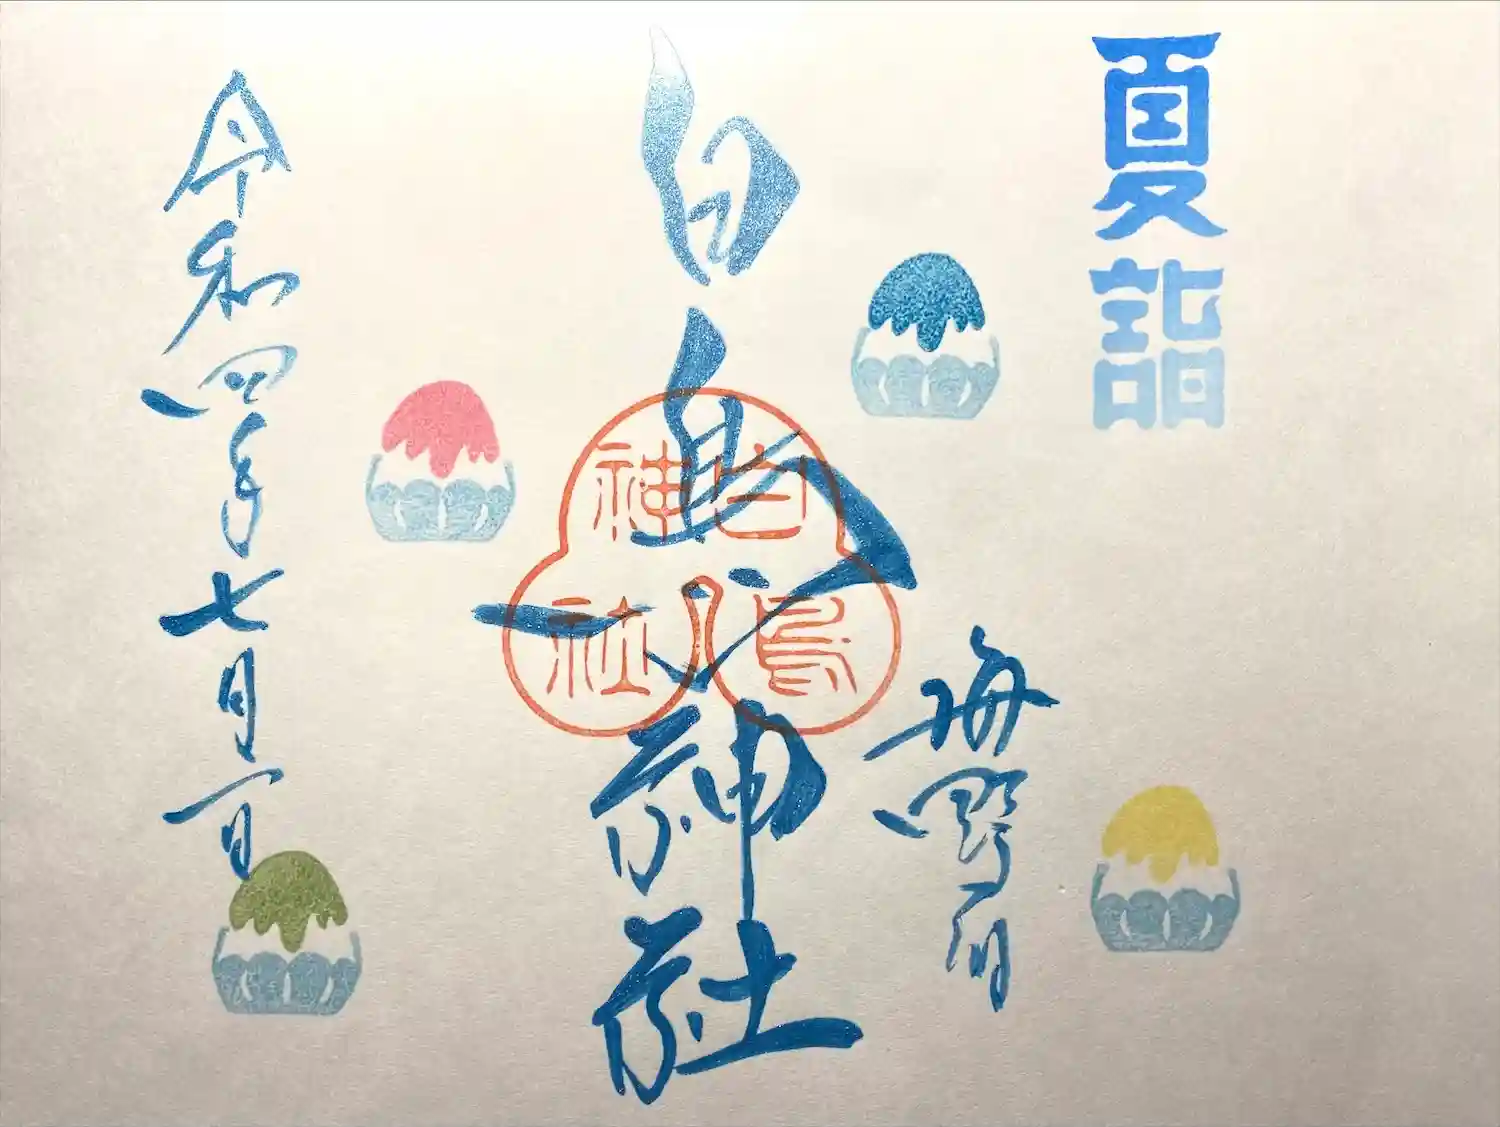 夏詣
海野宿
白鳥神社
白鳥
神社
令和四年七月一日